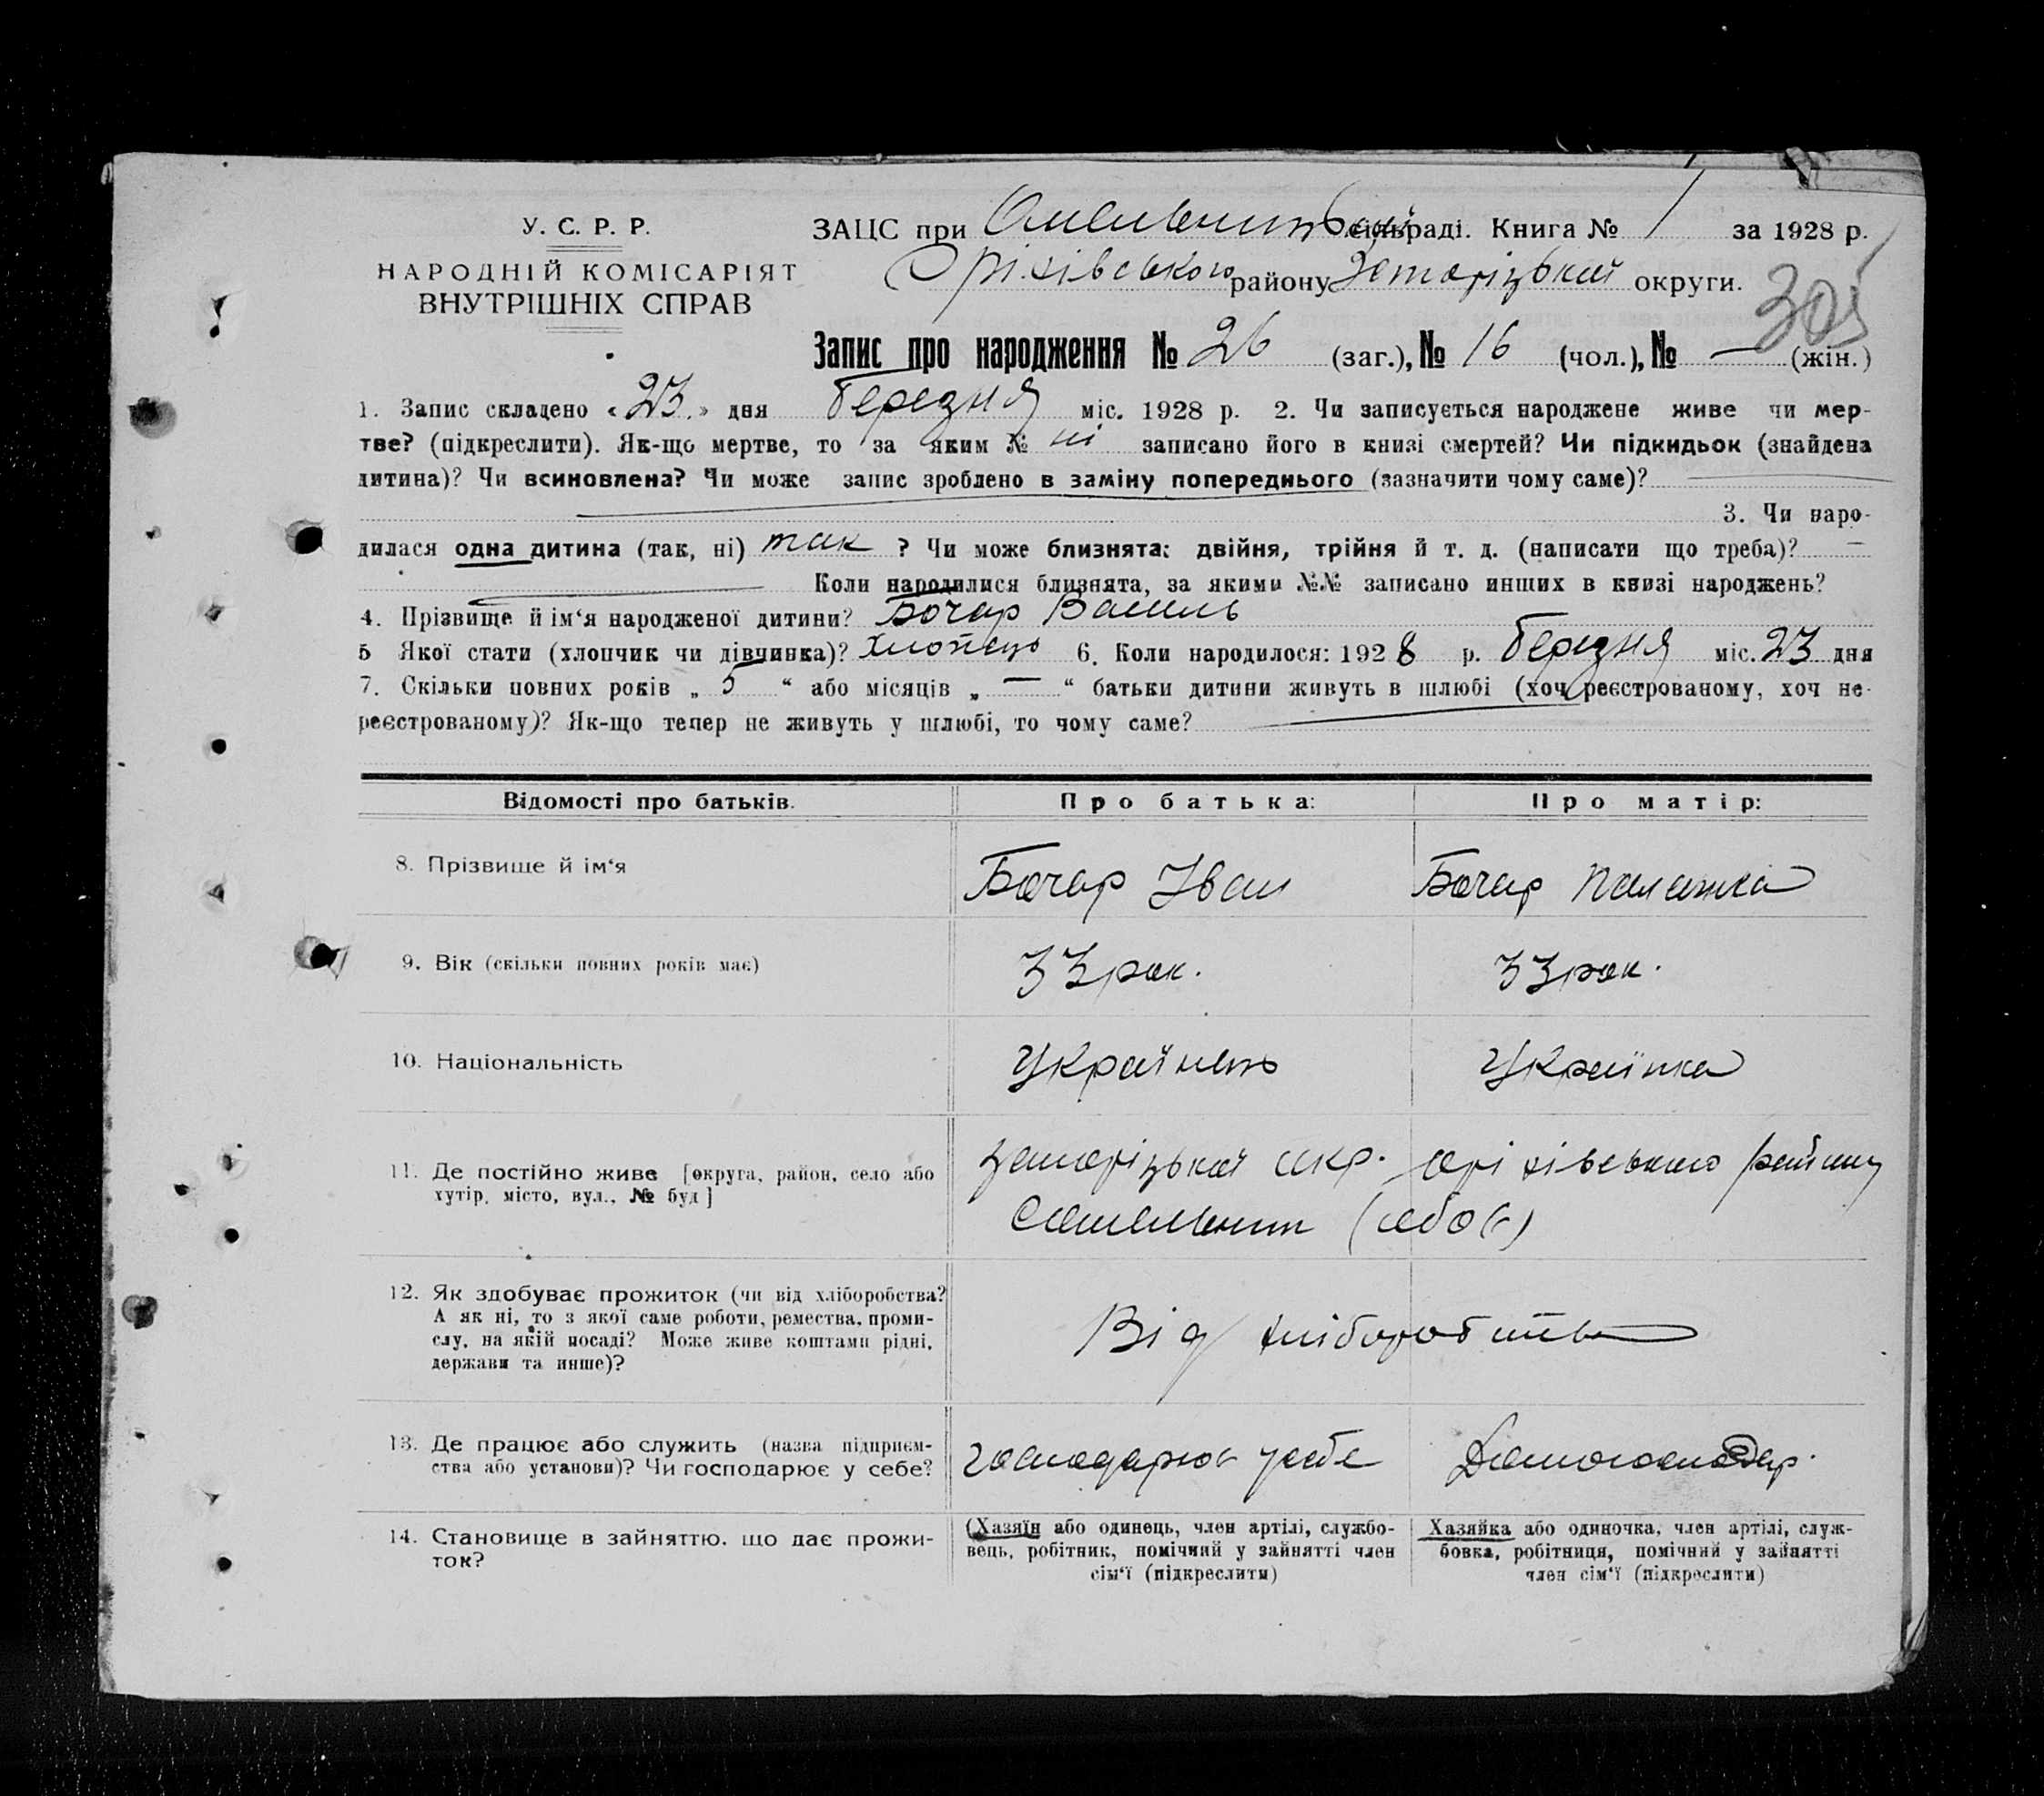 У. С. Р. Р.
НАРОДНІЙ КОМІСАРІЯТ
ВНУТРІШНІХ СПРАВ
ЗАЦС при Омельницькій сільраді. Книга № 1 за 1928 р.
Оріхівського району Запоріцької округи.
305
Запис про народження № 26 (заг.), № 16 (чол.), № — (жін.)
1. Запис складено «23» дня березня міс. 1928 р. 2. Чи записується народжене живе чи мер-
тве? (підкреслити). Як-що мертве, то за яким № ні записано його в книзі смертей? Чи підкидьок (знайдена
дитина)? Чи всиновлена? Чи може запис зроблено в заміну попереднього (зазначити чому саме)?
3. Чи наро-
дилася одна дитина (так, ні) так ? Чи може близнята: двійня, трійня й т. д. (написати що треба)? —
Коли народилися близнята, за якими №№ записано инших в книзі народжень?
4. Прізвище й ім'я народженої дитини? Бочар Василь
5 Якої стати (хлопчик чи дівчинка)? Хлопець 6. Коли народилося: 1928 р. березня міс. 23 дня
7. Скільки повних років „ 5 “ або місяців „ — “ батьки дитини живуть в шлюбі (хоч реєстрованому, хоч не-
реєстрованому)? Як-що тепер не живуть у шлюбі, то чому саме?
Відомості про батьків. Про батька: Про матір:
8. Прізвище й ім'я Бочар Іван Бочар Палажка
9. Вік (скільки повних років має) 33 рок. 33 рок.
10. Національність Українець Українка
11. Де постійно живе [округа, район, село або
хутір, місто, вул., № буд]
Запоріцької окр. Оріхівського району
Омельник
12. Як здобуває прожиток (чи від хліборобства?
А як ні, то з якої саме роботи, ремества, проми-
слу, на якій посаді? Може живе коштами рідні,
держави та инше)?
Від хліборобства
13. Де працює або служить (назва підприєм-
ства або установи)? Чи господарює у себе?
господарює у себе Домогосподар.
14. Становище в зайняттю, що дає прожи-
ток?
(Хазяїн або одинець, член артілі, службо-
вець, робітник, помічний у зайнятті член
сім'ї (підкреслити)
Хазяйка або одиночка, член артілі, служ-
бовка, робітниця, помічний у зайнятті
член сім'ї (підкреслити)